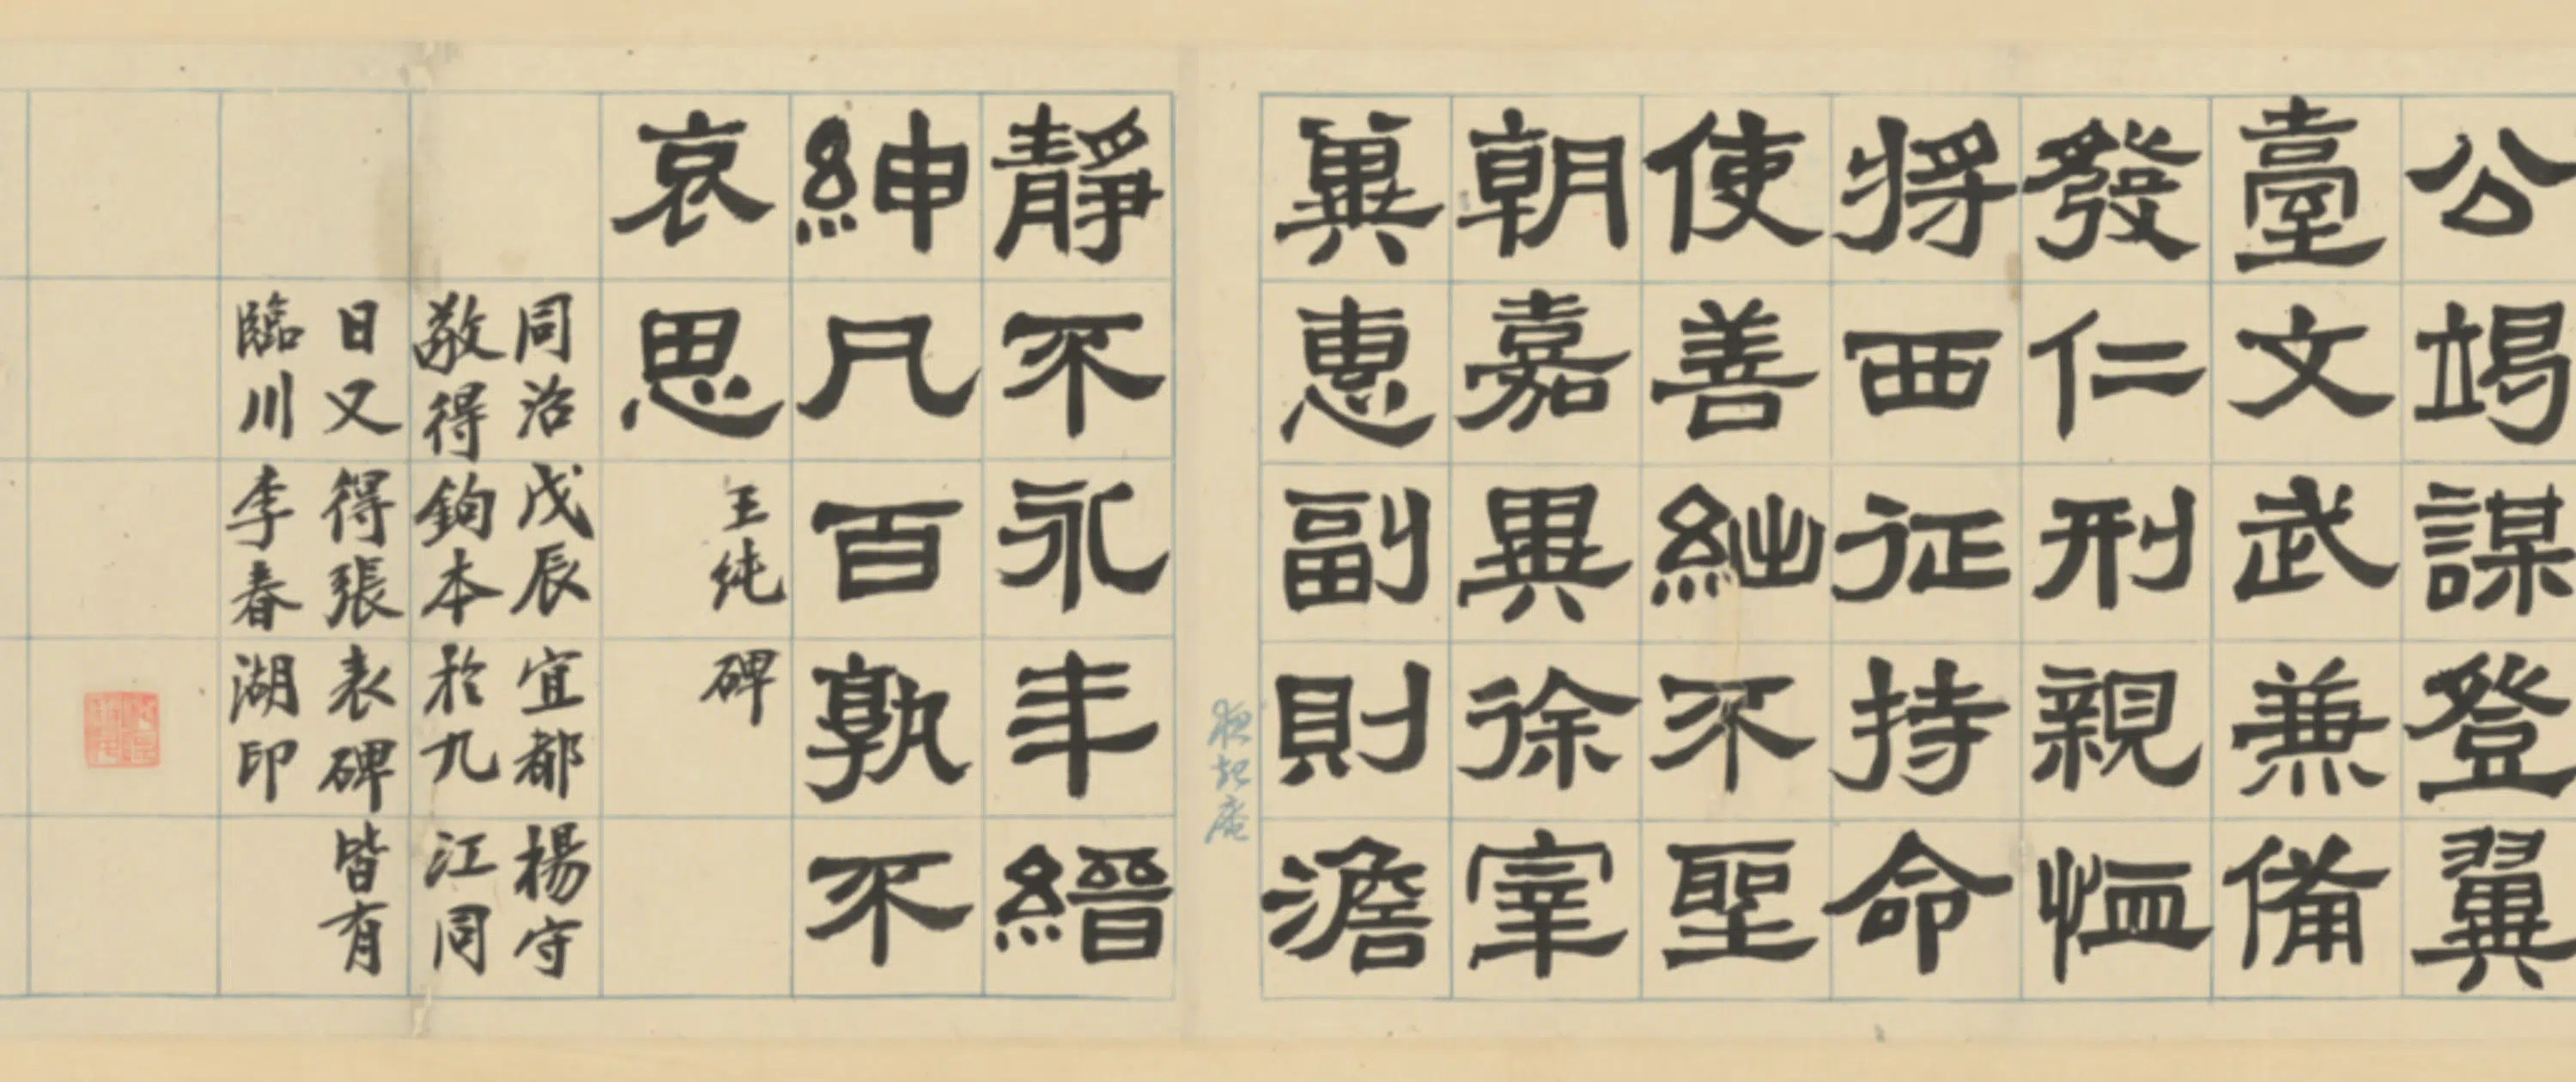 公竭謀登翼
臺文武兼備
發仁刑親恤
將西征持命
使善絀不聖
朝嘉異徐宰
冀惠副則澹
靜不永年縉
紳凡百孰不
哀思
王純碑
同治戊辰宜都楊守
敬得鉤本於九江同
日又得張表碑皆有
臨川李春湖印